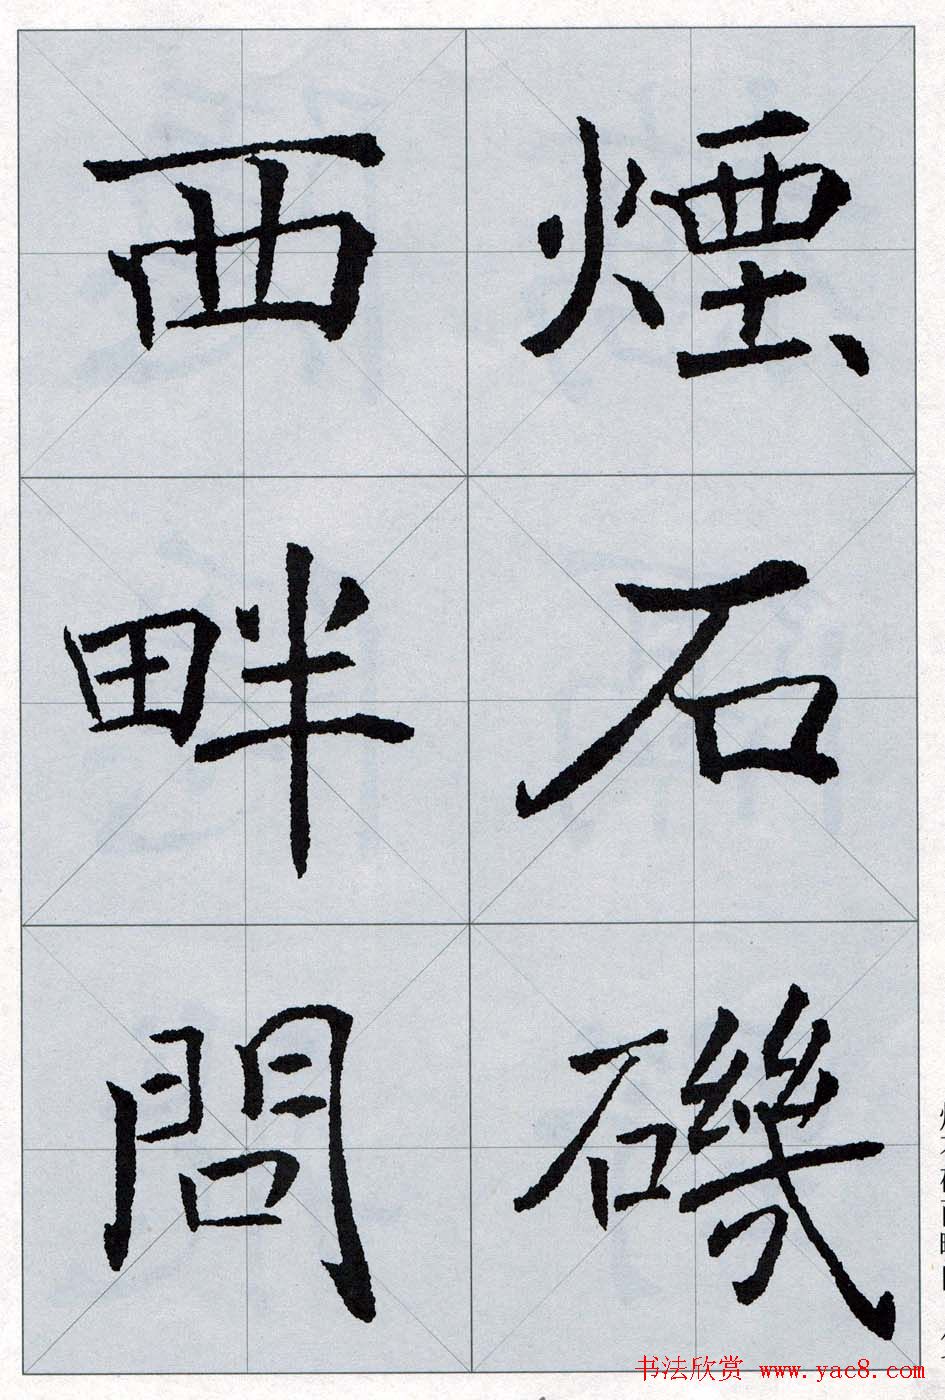 煙石磯
西畔問
书法欣赏 www.yac8.com